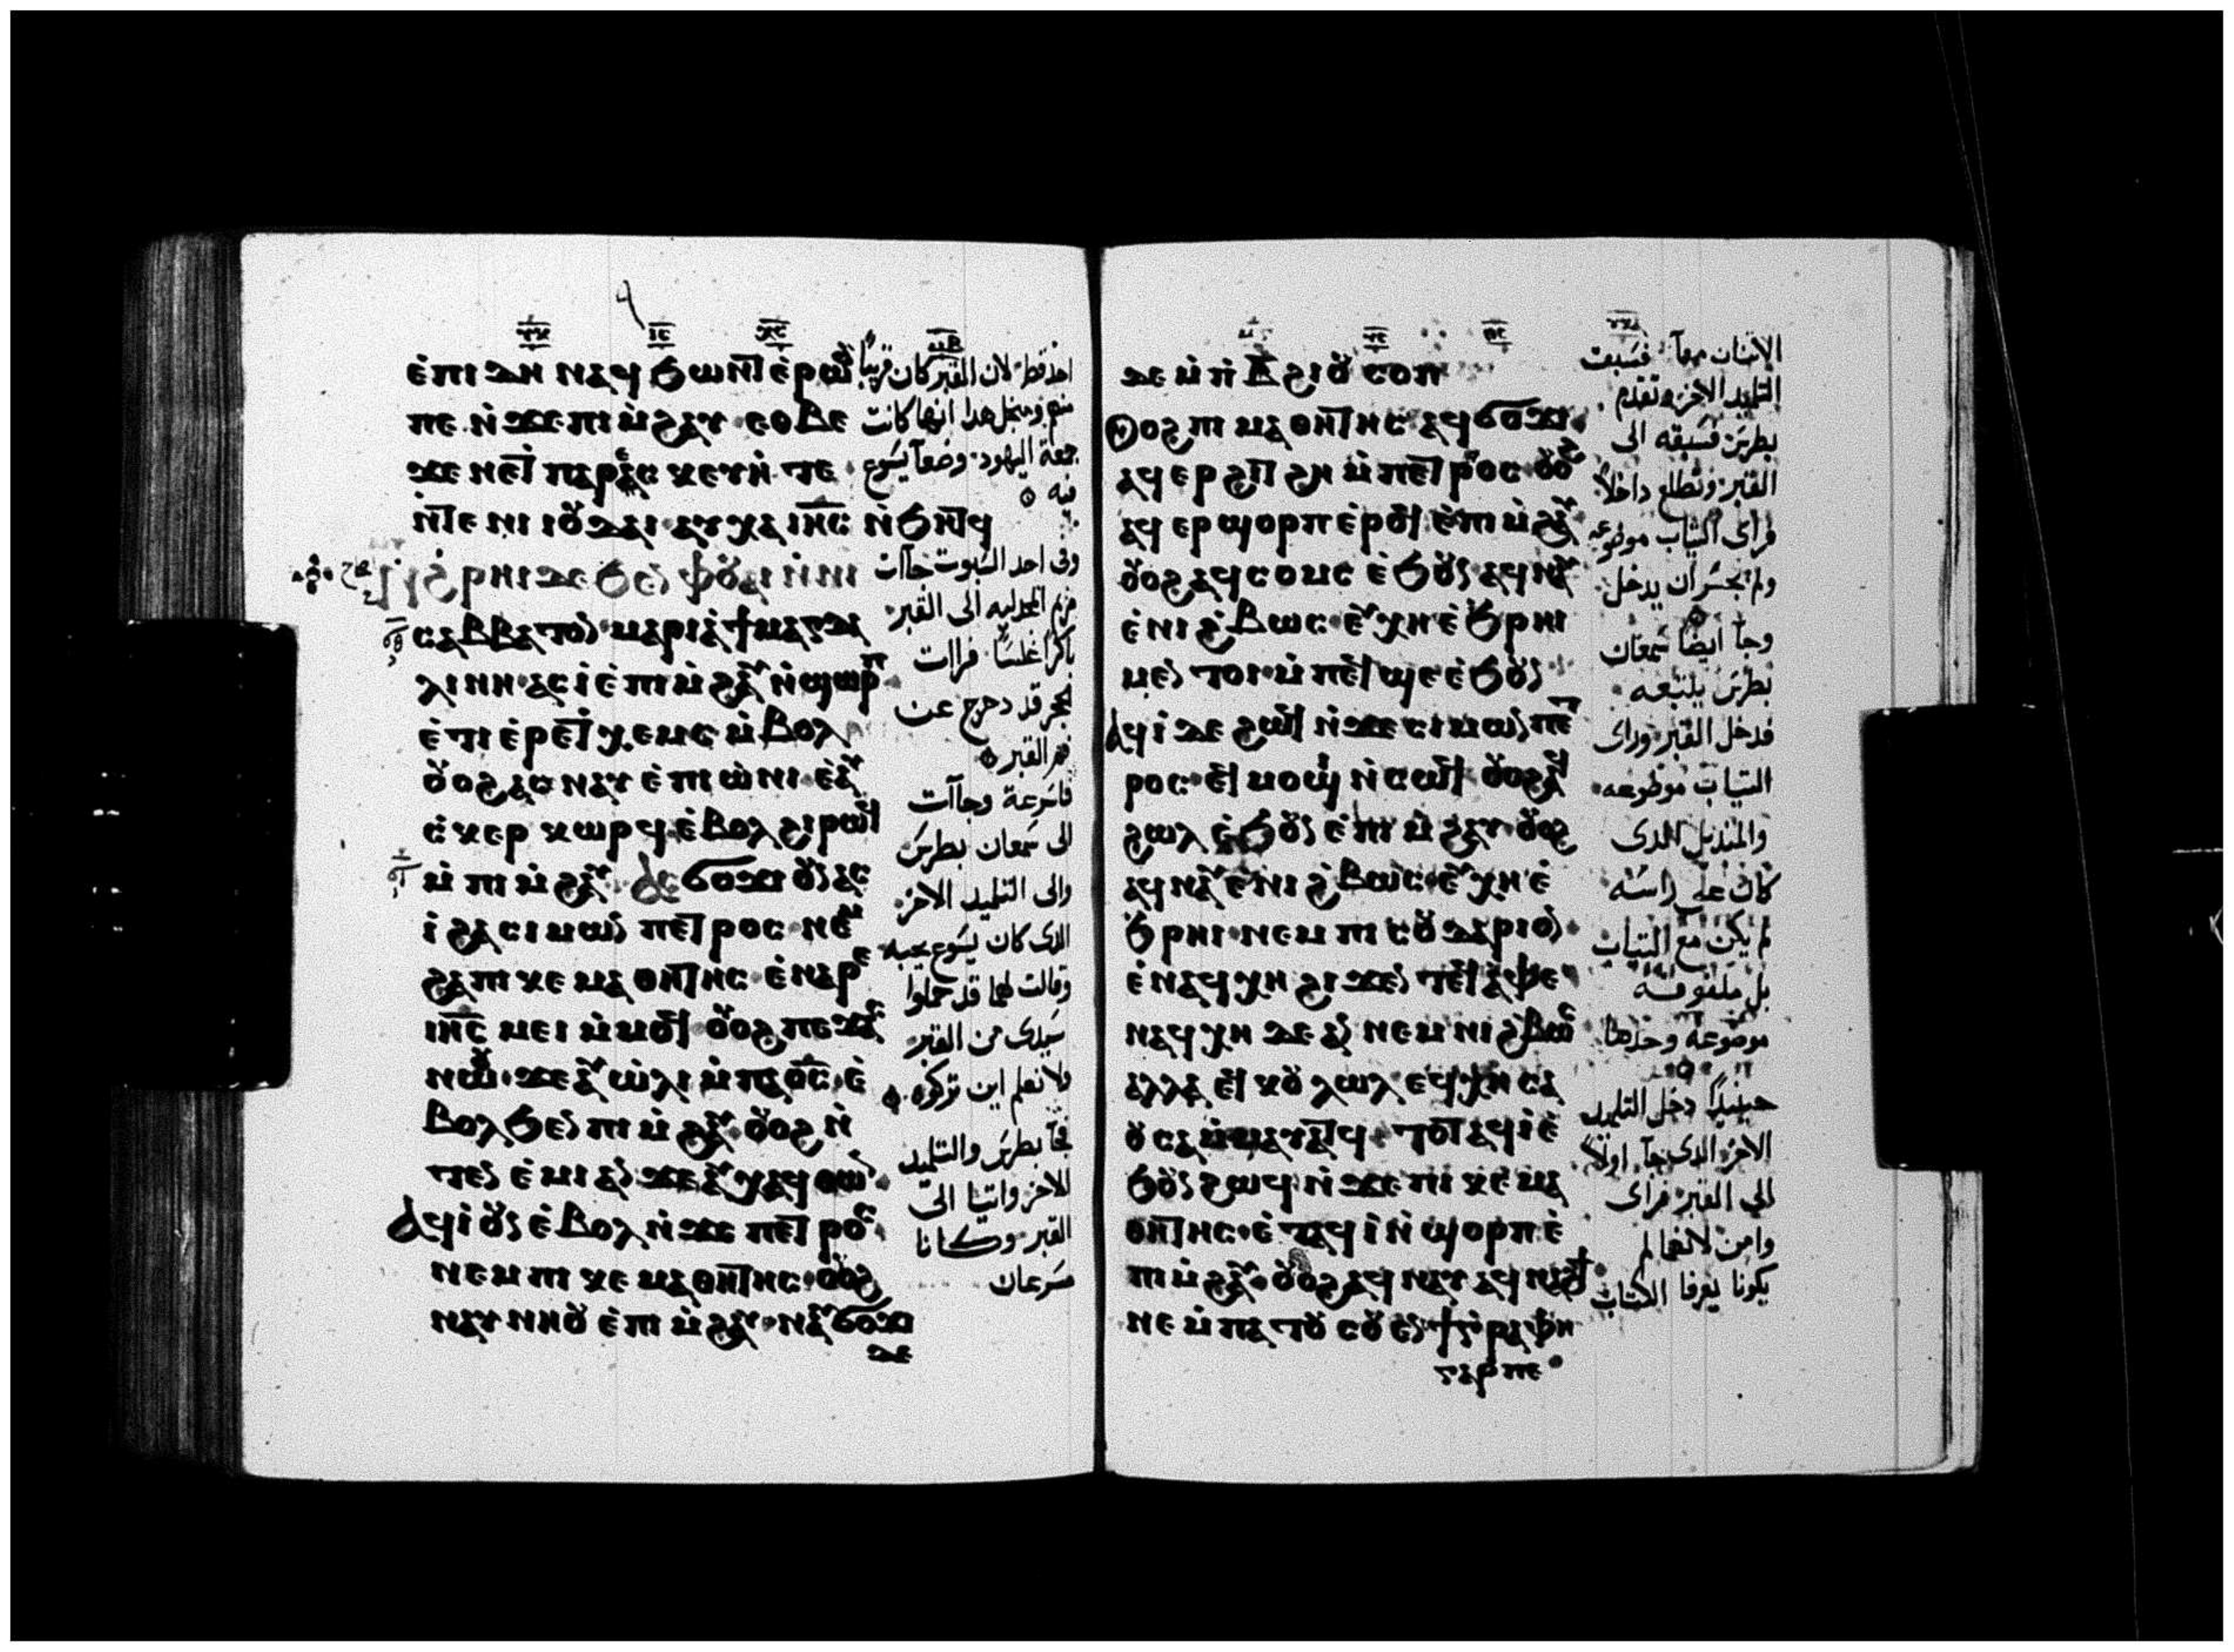 ⲉ̀ⲡⲓⲇⲏ ⲛⲁϥϧⲱⲛⲧ ⲉ̀ⲣⲱⲟⲩ
ⲡⲉ ⲛ̀ϫⲉ ⲡⲓⲙ̀ϩⲁⲩ ⲉⲑⲃⲉ
ⲛ̀ⲧⲉ ⲛⲓⲓⲟⲩⲇⲁⲓ ⲁⲩⲭⲁ ⲓⲏⲥ ⲛ̀ϧⲏⲧϥ
ⲥⲁⲃⲃⲁⲧⲟⲛ ⲙⲁⲣⲓⲁ̀ ϯⲙⲁⲅⲇⲁ
ⲗⲓⲛⲏ ⲁⲥⲓ̀ ⲉ̀ⲡⲓⲙ̀ϩⲁⲩ ⲛ̀ϣⲱⲣⲡ
ⲉ̀ⲧⲓ ⲉ̀ⲣⲉ ⲡⲭⲉⲙⲥ ⲙ̀ⲃⲟⲗ
ⲟⲩⲟϩ ⲁⲥⲛⲁⲩ ⲉ̀ⲡⲓⲱ̀ⲛⲓ ⲉ̀ⲁⲩ
ⲥ̀ⲕⲉⲣⲕⲱⲣϥ ⲉ̀ⲃⲟⲗ ϩⲓⲣⲱϥ
ⲙ̀ⲡⲓⲙ̀ϩⲁⲩ ⲁⲥϭⲟϫⲓ ⲟⲩⲛ ⲁⲥ
ⲓ̀ ϩⲁ ⲥⲓⲙⲱⲛ ⲡⲉⲧⲣⲟⲥ ⲛⲉⲙ
ϩⲁ ⲡⲓⲕⲉ ⲙⲁⲑⲏⲧⲏⲥ ⲉ̀ⲛⲁⲣⲉ
ⲓⲏⲥ ⲙⲉⲓ ⲙ̀ⲙⲟϥ ⲟⲩⲟϩ ⲡⲉϫⲁⲥ
ⲛⲱⲟⲩ ϫⲉ ⲁⲩⲱ̀ⲗⲓ ⲙ̀ⲡⲁⲟ̅ⲥ̅ ⲉ̀
ⲃⲟⲗϧⲉⲛ ⲡⲓⲙ̀ϩⲁⲩ ⲟⲩⲟϩ ⲛ̀
ⲧⲉⲛ ⲉ̀ⲙⲓ ⲁⲛ ϫⲉ ⲁⲩⲭⲁϥ ⲑⲱⲛ
ⲁϥⲓ̀ ⲟⲩⲛ ⲉ̀ⲃⲟⲗ ⲛ̀ϫⲉ ⲡⲉⲧⲣⲟⲥ
ⲛⲉⲙ ⲡⲓⲕⲉ ⲙⲁⲑⲏⲧⲏⲥ ⲟⲩⲟϩ
ⲛⲁⲩⲛⲏⲟⲩ ⲉ̀ⲡⲓⲙ̀ϩⲁⲩ ⲛⲁⲩϭⲟϫⲓ
ⲇⲉ
احد قط لان القبر كان قريبًا
منهم ومنجل هدا انها كانت
جمعة اليهود وضعا يسوع
فيه
وفى احد السبوت جاات
مريم المجدليه الى القبر
باكرا غلسًا فراات
الحجر قد دحرج عن
فم القبر
فاسرعة وجاآت
الى سمعان بطرس
والى التلميد الاخر
الدى كان يسوع يحبه
وقالت لهما قد حملوا
سيدى من القبر
ولا نعلم اين تركوه
فجآ بطرس والتلميد
الاخر واتيا الى
القبر وكانا
مسرعان
ⲇⲉ ⲙ̀ⲡⲃ̅ ϩⲓⲟⲩⲥⲟⲡ
ⲟⲩⲟϩ ⲡⲓⲙⲁⲑⲏⲧⲏⲥ ⲁϥϭⲟϫⲓ
ⲁϥⲉⲣϩⲓⲧϩⲏ ⲙ̀ⲡⲉⲧⲣⲟⲥ ⲟⲩⲟϩ
ⲁϥⲉⲣϣⲟⲣⲡ ⲉ̀ⲣⲟϥ ⲉ̀ⲡⲓⲙ̀ϩⲁⲩ
ⲟⲩⲟϩ ⲁϥⲥⲟⲙⲥ ⲉ̀ϧⲟⲩⲛ ⲁϥⲛⲁⲩ
ⲉ̀ⲛⲓϩ̀ⲃⲱⲥ ⲉⲩⲭⲏ ⲉ̀ϧⲣⲏⲓ
ⲙⲉⲛⲧⲟⲓ ⲙ̀ⲡⲉϥϣⲉ ⲉ̀ϧⲟⲩⲛ
ⲁϥⲓ̀ ⲇⲉ ϩⲱϥ ⲛ̀ϫⲉ ⲥⲓⲙⲱⲛ ⲡⲉⲧ
ⲣⲟⲥ ⲉϥⲙⲟϣⲓ ⲛ̀ⲥⲱϥ ⲟⲩⲟϩ ⲁϥ
ϩⲱⲗ ⲉ̀ϧⲟⲩⲛ ⲉ̀ⲡⲓⲙ̀ϩⲁⲩ ⲟⲩⲟϩ
ⲁϥⲛⲁⲩ ⲉ̀ⲛⲓϩ̀ⲃⲱⲥ ⲉⲩⲭⲏ ⲉ̀
ϧⲣⲏⲓ ⲛⲉⲙ ⲡⲓⲥⲟⲩⲇⲁⲣⲓⲟⲛ
ⲉ̀ⲛⲁϥⲭⲏ ϩⲓϫⲉⲛ ⲧⲉϥⲁ̀ⲫⲉ
ⲛⲁϥⲭⲏ ⲇⲉ ⲁⲛ ⲛⲉⲙ ⲛⲓϩ̀ⲃⲱⲥ
ⲁⲗⲗⲁ ⲉϥⲕⲟⲩⲗⲱⲗ ⲉϥⲭⲏ ⲥⲁ
ⲟⲩⲥⲁ ⲙ̀ⲙⲁⲩⲁⲧϥ ⲧⲟⲧⲉ ⲁϥⲓ̀ ⲉ̀
ϧⲟⲩⲛ ϩⲱϥ ⲛ̀ϫⲉ ⲡⲓⲕⲉ ⲙⲁ
ⲑⲏⲧⲏⲥ ⲉ̀ⲧⲁϥⲓ̀ ⲛ̀ϣⲟⲣⲡ ⲉ̀
ⲡⲓⲙ̀ϩⲁⲩ ⲟⲩⲟϩ ⲁϥⲛⲁⲩ ⲁϥⲛⲁϩϯ
ⲛⲉ ⲙ̀ⲡⲁⲧⲟⲩⲥⲟⲩⲉⲛ ϯⲅⲣⲁⲫⲏ
ⲅⲁⲣ ⲡⲉ
الاتنان معآ فسبق
التلميد الاخر وتقدم
بطرس فسبقه الى
القبر وتطلع داخلاً
فراى التياب موضوعه
ولم يجسر ان يدخل
وجآ ايضًا سمعان
بطرس يلتبعه
فدخل القبر وراى
التياب موظوعه
والمنديل الدى
كان على راسه
لم يكن مع التياب
بل ملفوفه
موضوعه وحدها
حينيدًا دخل التلميد
الاخر الدى جآ اولاً
الى القبر فراى
وامن لانهما لم
يكونا يعرفا الكتاب